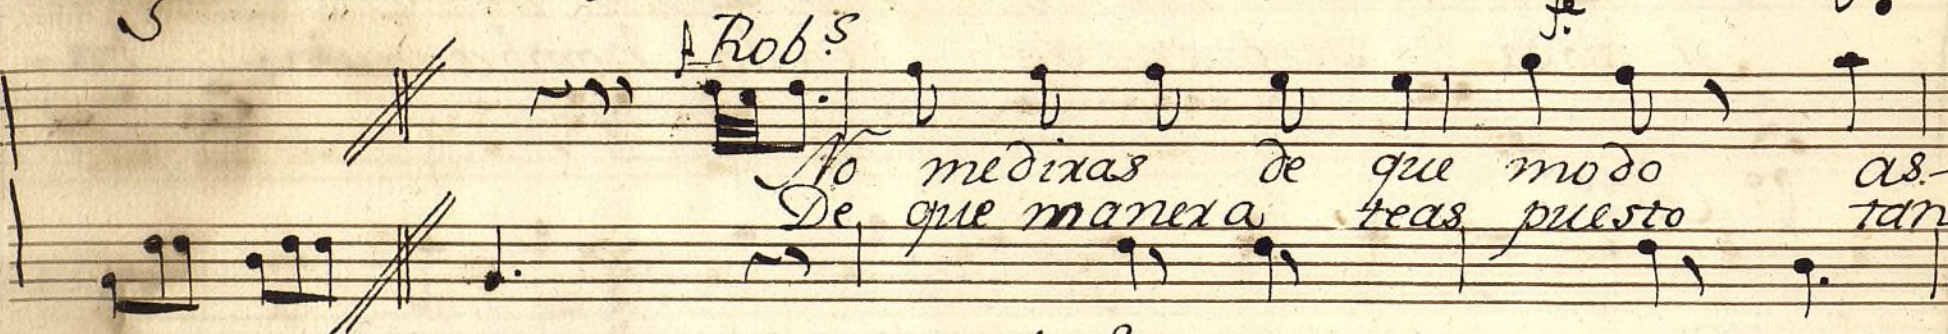 Rob.s
fe
No me diras de que modo as-
De que manera teas puesto tan